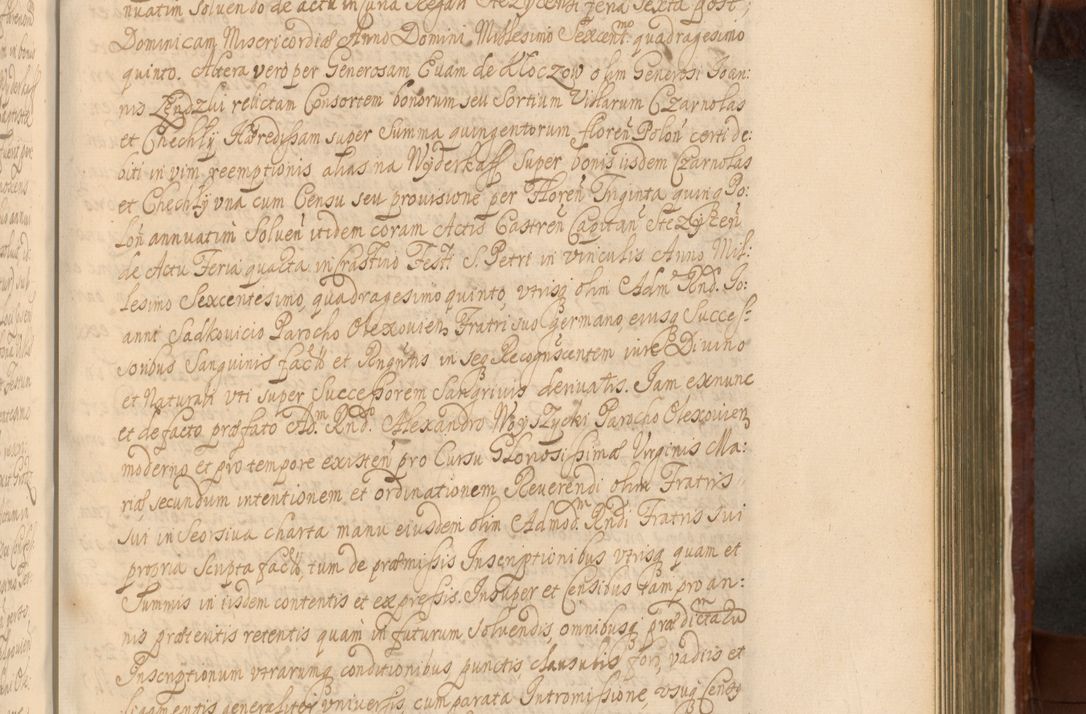 nuatim Solvendo de actu in
Dominicam Misericordiæ Anno Domini Millesimo Sexcent.mo quadragesimo
quinto. Altera verò per Generosam Evam de Kloczow olim Generosi Joan:
nis relictam Consortem bonorum seu Sortium Villarum Czarnolas
et Chechły Hæredissam super Summa quingentorum floren̄ Polon̄ certi de:
biti in vim reemptionis alias na Wyderkaff super bonis iisdem Czarnolas
et Chechły vna cum Censu seu provisione per Floren̄ Triginta quinq Po:
lon̄ annuatim Solven̄ itidem coram Actis Castren̄ Capitan̄ Stezyzen̄
de Actu Feria quarta in Crastino Festi S. Petri in vinculis Anno Mil:
lesimo Sexcentesimo, quadragesimo quinto, vtrisq olim Adm Rnd. Jo:
anni Sadkovicio Parocho Olexovien Fratri suo Germano, eiusq Succes:
soribus Sanguinis et in seq Recognoscentem iure Divino
et Naturali vti super Successorem Sanguinis derivatis. Jam exnunc
et de facto præfato Ad.m Rnd.o Alexandro Woyszycki Parocho Olexovien
moderno et pro tempore existen̄ pro Cursu Gloriosissimæ Virginis Ma:
riæ, secundum intentionem et ordinationem Reverendi olim Fratris
sui in Seorsiva charta manu eiusdem olim Admod.m Rndi Fratris sui
propria Scripta tum de præmissis Inscriptionibus vtrisq quam et
Summis in iisdem contentis et expressis. Insuper et Censibus tam pro an:
nis præteritis retentis quam in futurum Solvendis, omnibusq
Inscriptionum vtrarumq conditionibus, punctis, clausulis, fori, vadiis et
ligamentis generaliter vniversis cum parata Intromissione,